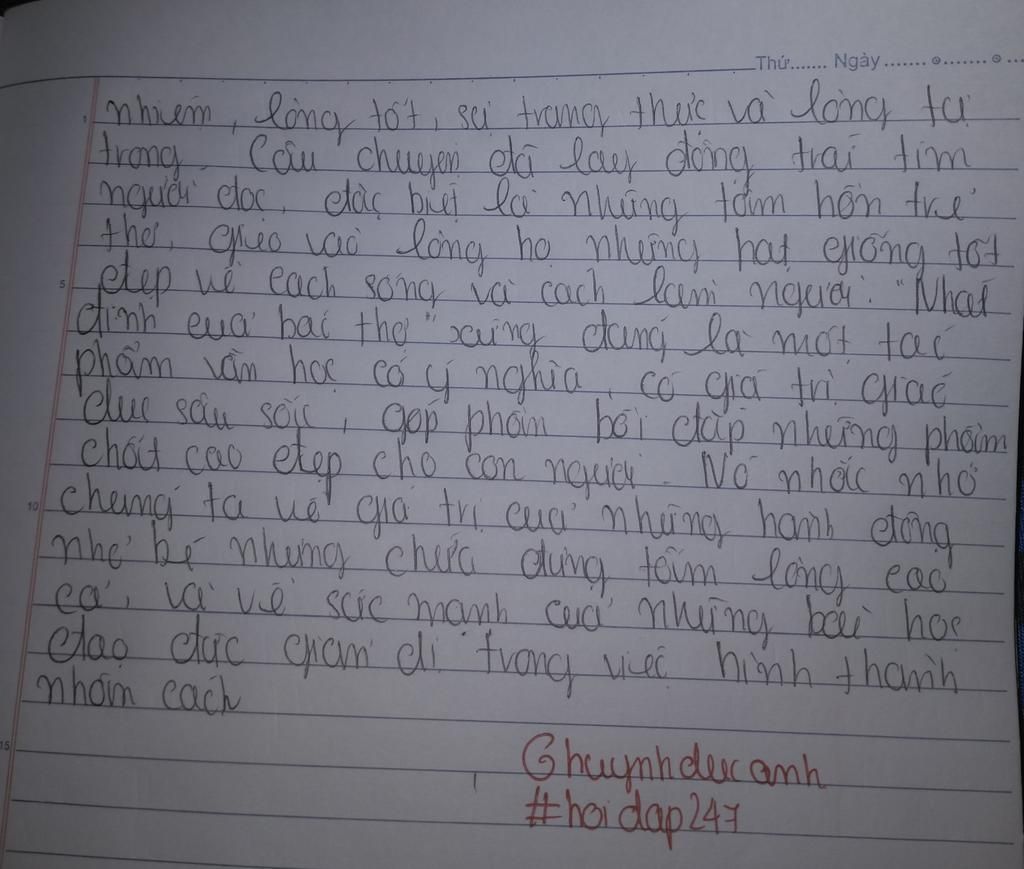 Thứ....... Ngày ....... ⊙ ....... ⊙ ...
nhiệm, lòng tốt, sự trung thực và lòng tự
trọng. Câu chuyện đã lay động trái tim
người đọc, đặc biệt là những tâm hồn trẻ
thơ, gieo vào lòng họ những hạt giống tốt
5 đẹp về cách sống và cách làm người. "Nhà
đỉnh của bài thơ" xứng đáng là một tác
phẩm văn học có ý nghĩa, có giá trị giáo
dục sâu sắc, góp phần bồi đắp những phẩm
chất cao đẹp cho con người. Nó nhắc nhở
10 chúng ta về giá trị của những hành động
nhỏ bé nhưng chứa đựng tấm lòng cao
cả, và về sức mạnh của những bài học
đạo đức giản dị trong việc hình thành
nhân cách
15
Ghuynhducanh
#hoidap247